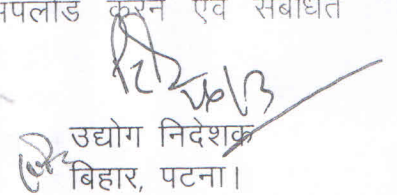 अपलोड करने एवं संबंधित
उद्योग निदेशक
बिहार, पटना।